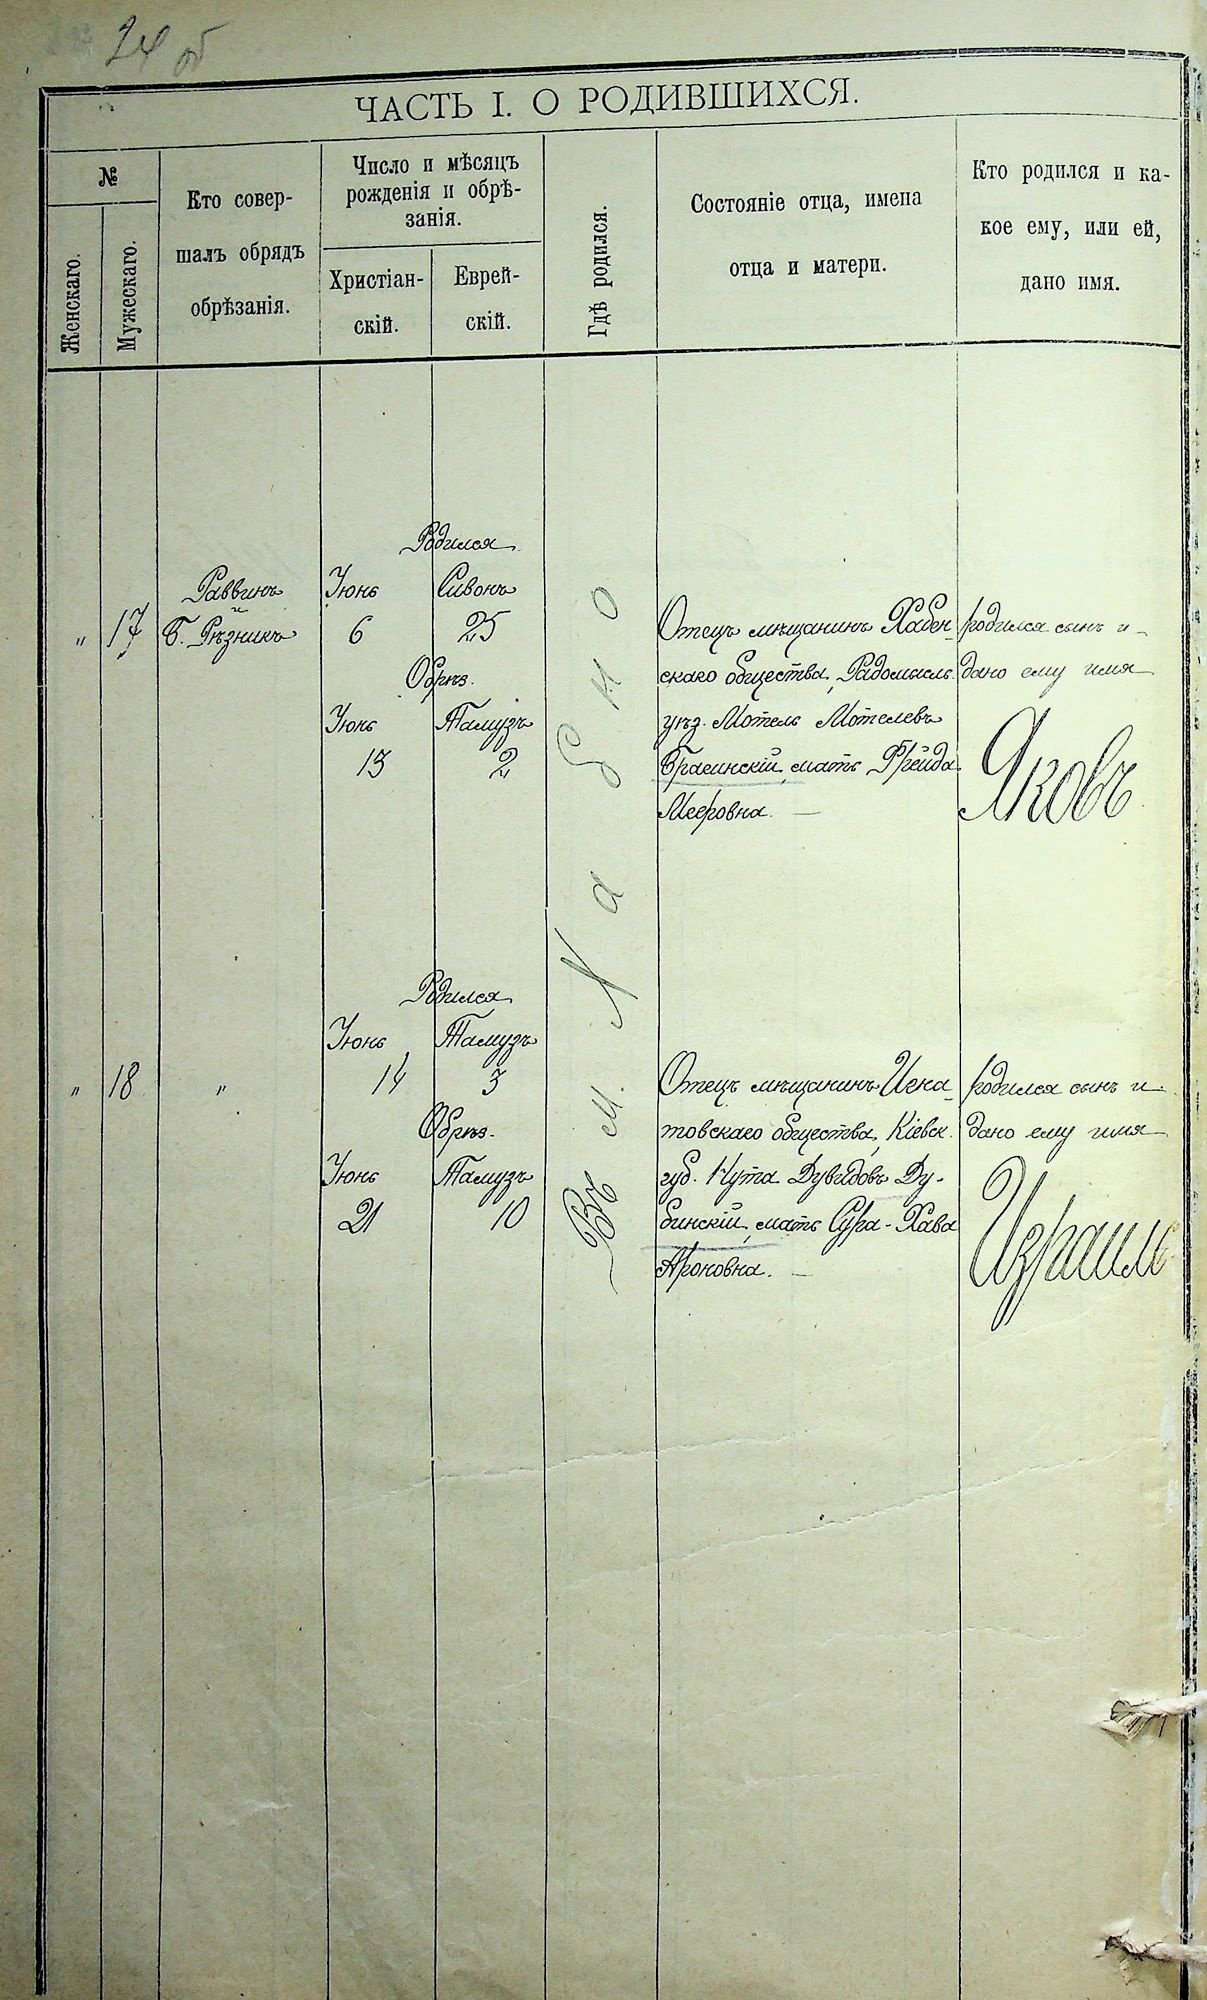 24 об
ЧАСТЬ I. О РОДИВШИХСЯ.
№
Женскаго.
Мужескаго.
Кто совер-
шалъ обрядъ
обрѣзанія.
Число и мѣсяцъ
рожденія и обрѣ-
занія.
Христіан-
скій.
Еврей-
скій.
Гдѣ родился.
Состояніе отца, имена
отца и матери.
Кто родился и ка-
кое ему, или ей,
дано имя.
„ 17
Раввинъ
и
Б. Рѣзникъ
Родился
Іюнь Сивонъ
6 25
Обрѣз.
Іюнь Тамузъ
13 2
Въ м. Наб но
Отецъ мѣщанинъ Хабен-
скаго общества, Радомысль.
уѣз. Мотель Мотелевъ
Брагинскій, мать Фрейда
Мееровна. —
родился сынъ и
дано ему имя
Яковъ
„ 18 „
Родился
Іюнь Тамузъ
14 3
Обрѣз.
Іюнь Тамузъ
21 10
Отецъ мѣщанинъ Игна-
товскаго общества, Кіевск.
губ. Нута Дувидовъ Ду-
бинскій, мать Сура-Хава
Ароновна. —
родился сынъ и
дано ему имя
Израиль